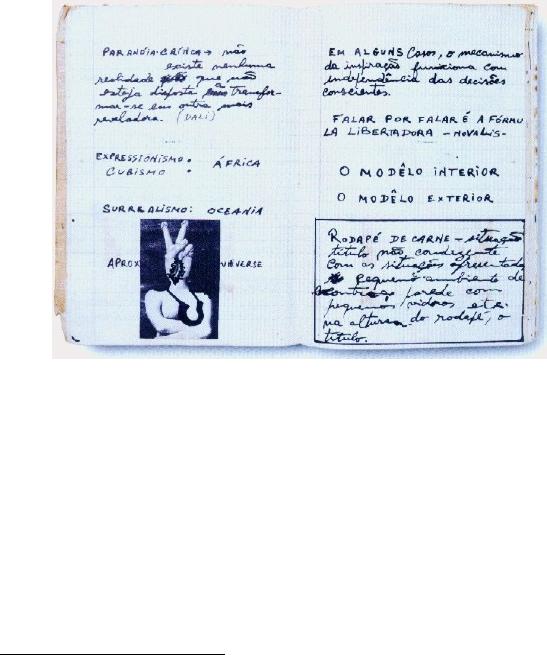 PARANÓIA-CRÍTICA → não
existe nenhuma
realidade que não
esteja disposta transfor-
mar-se em outra mais
reveladora. (DALI)
EXPRESSIONISMO:
CUBISMO : ÁFRICA
SURREALISMO: OCEANIA
APROX VNIVERSE
EM ALGUNS Casos, o mecanismo
da inspiração funciona com
independência das decisões
conscientes.
FALAR POR FALAR É A FÓRMU
LA LIBERTADORA -NOVALIS-
O MODÊLO INTERIOR
O MODÊLO EXTERIOR
RODAPÉ DE CARNE - situação
título não condizente
com as situações apresentadas
pequeno ambiente de
parede com
pequenos vidros etc.
na altura do rodapé, o
título.